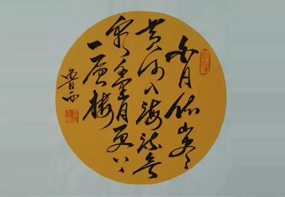 白日依山尽
黄河入海流欲
穷千里目更上
一层楼